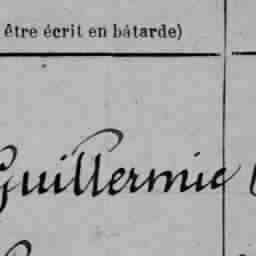 être écrit en bâtarde)
Guillermic